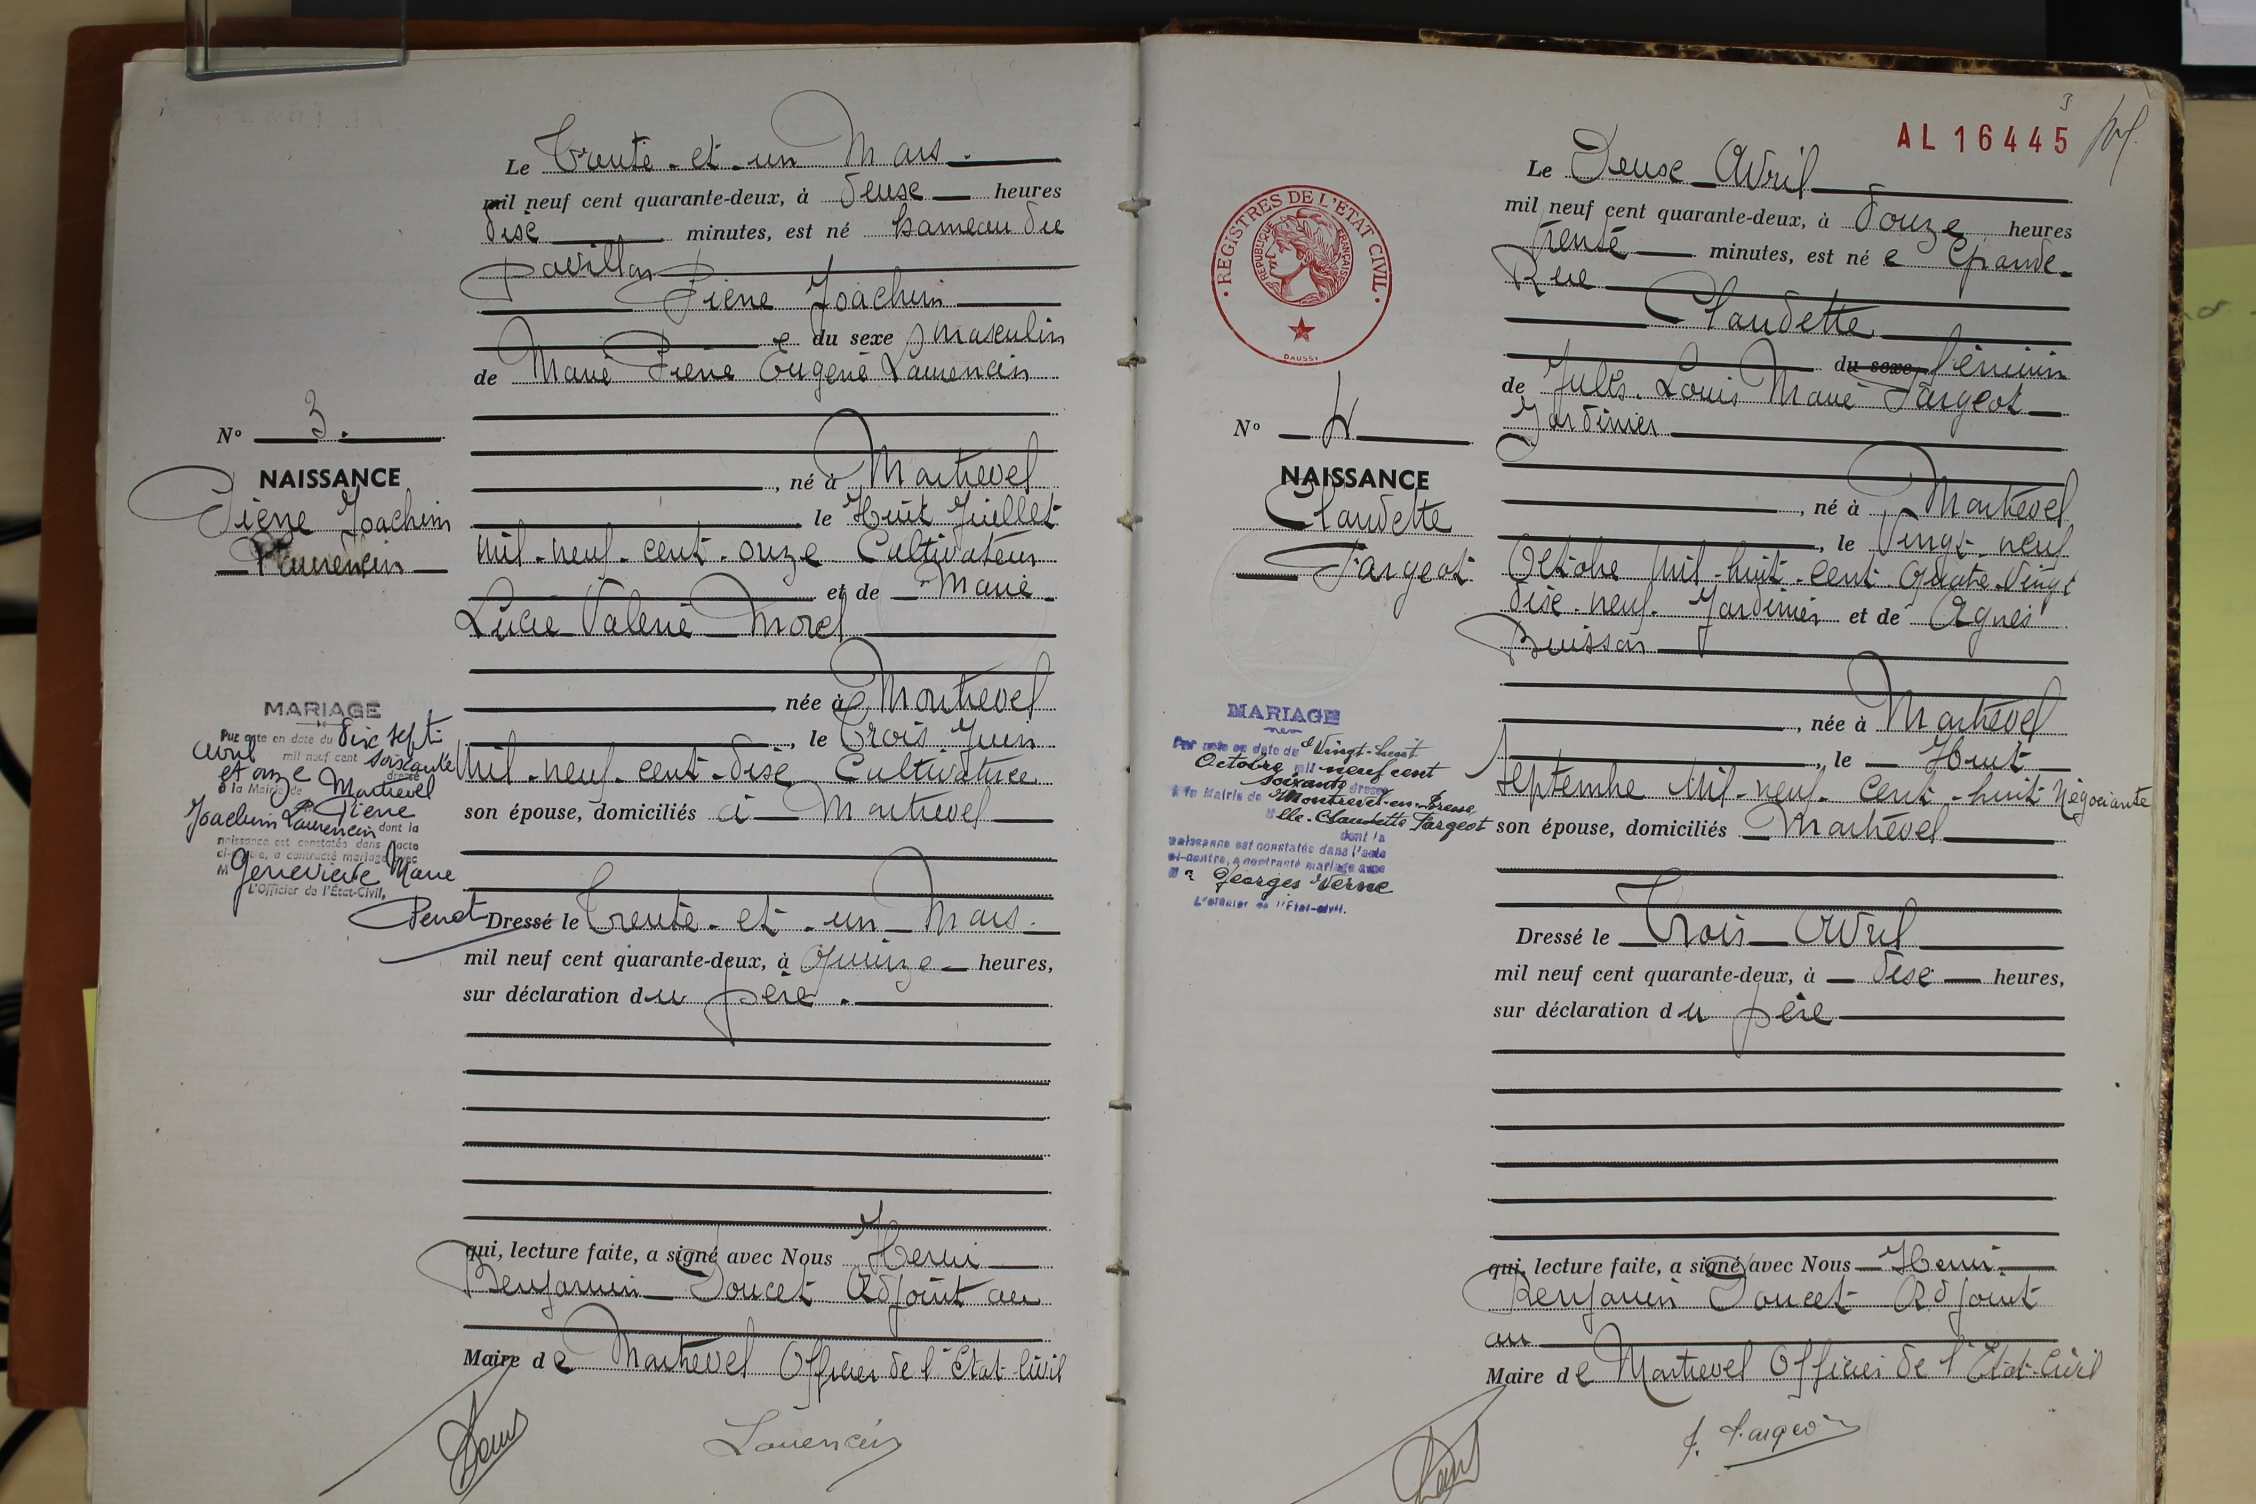 Le Trente-et-un Mars
mil neuf cent quarante-deux, à deuse heures
dise minutes, est né hameau du
pavillon
Pierre Joachim
du sexe masculin
de Marie Pierre Eugène Laurencin
N° 3.
, né à Montrevel
NAISSANCE
le Huit Juillet
Pierre Joachim
Laurencin
mil-neuf-cent-onze Cultivateur
et de Marie
Lucie Valerie Morel
née à Montrevel
, le Trois Juin
mil-neuf-cent-dise Cultivatrice
son épouse, domiciliés à Montrevel
MARIAGE
Par acte en date du dix sept
avril mil neuf cent soixante
et onze dressé
à la Mairie de Montrevel
Pierre
Joachim Laurencin dont la
naissance est constatée dans l'acte
ci-contre, a contracté mariage avec
M Geneviève Marie
L'Officier de l'État-Civil,
Penot
Dressé le Trente-et-un Mars.
mil neuf cent quarante-deux, à Quinze heures,
sur déclaration du père.
qui, lecture faite, a signé avec Nous Henri
Benjamin Doucet Adjoint au
Maire de Montrevel Officier de l'Etat-Civil
Laurencin
3
AL 16445
Le Deuse Avril
mil neuf cent quarante-deux, à douze heures
trente minutes, est née Grande-
Rue
Claudette
du sexe féminin
de Jules Louis Marie Fargeot
Jardinier
REGISTRES DE L'ETAT CIVIL
REPUBLIQUE FRANÇAISE
DAUSSY
N° 4
NAISSANCE
Claudette
Fargeot
, né à Montrevel
, le Vingt-neuf
Octobre mil-huit-cent-quatre-vingt
dise-neuf Jardinier et de Agnès
Buisson
, née à Montrevel
, le Huit
septembre mil-neuf-cent-huit Négociante
son épouse, domiciliés Montrevel
MARIAGE
Par acte en date du Vingt-huit
Octobre mil neuf cent
soixante dressé
à la Mairie de Montrevel-en-Bresse
Mlle Claudette Fargeot
dont la
naissance est constatée dans l'acte
ci-contre, a contracté mariage avec
Mr Georges Verne
L'officier de l'Etat-civil.
Dressé le Trois Avril
mil neuf cent quarante-deux, à dise heures,
sur déclaration du père
qui, lecture faite, a signé avec Nous Henri
Benjamin Doucet Adjoint
au
Maire de Montrevel Officier de l'Etat-Civil
J. Fargeot